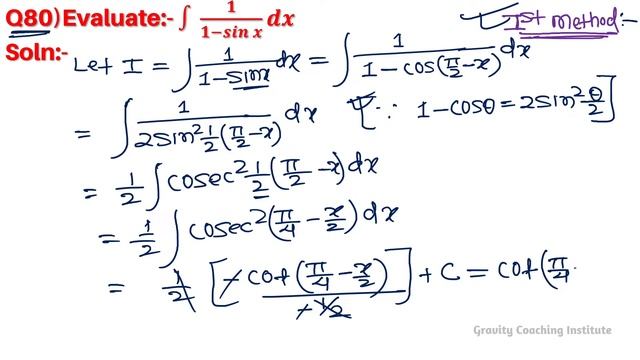 Q80) Evaluate:- ∫ 1/(1−sin x) dx
Ist method:-
Soln:-
Let I = ∫ 1/(1−sinx) dx = ∫ 1/(1−cos(π/2−x)) dx
= ∫ 1/(2sin² 1/2(π/2−x)) dx [∵ 1−cosθ = 2sin² θ/2]
= 1/2 ∫ cosec² 1/2(π/2−x) dx
= 1/2 ∫ cosec²(π/4−x/2) dx
= 1/2 [−cot(π/4−x/2)/−1/2] + C = cot(π/4
Gravity Coaching Institute